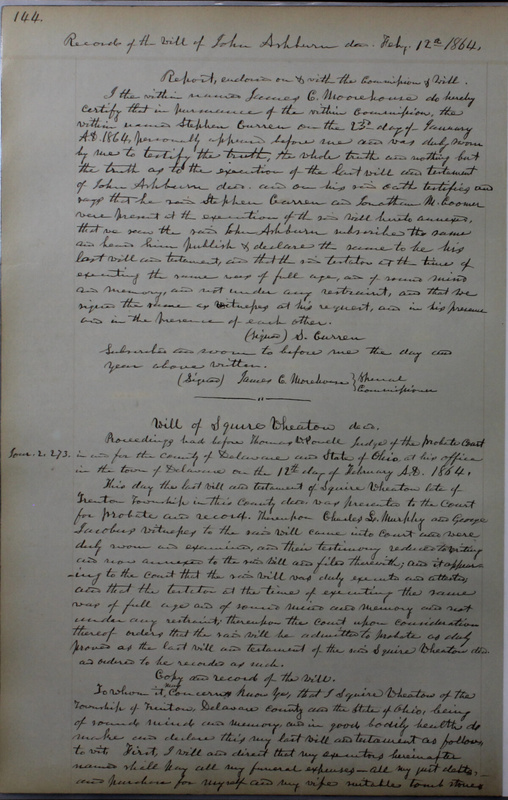 144.
Record of the Will of John Ashburn decd. Feby. 12th 1864.
Report, endorsed on & with the Commission & Will.
I the within named James C. Moorehouse do hereby
certify that in pursuance of the within Commission, the
within named Stephen Curren on the 23d day of January
A.D. 1864, personally appeared before me and was duly sworn
by me to testify the truth, the whole truth and nothing but
the truth as to the execution of the last will and testament
of John Ashburn decd. and on his said oath testifies and
says that he said Stephen Curren and Jonathan M. Coomer
were present at the execution of the said Will hereto annexed,
that we saw the said John Ashburn subscribe the same
and heard him publish & declare the same to be his
last will and testament, and that the said testator at the time of
executing the same was of full age, and of sound mind
and memory, and not under any restraint, and that we
signed the same as witnesses at his request, and in his presence
and in the presence of each other.
(Signed) S. Curren
Subscribed and sworn to before me the day and
year above written.
(Signed) James C. Morehouse } Special
Commissioner
Will of Squire Wheaton decd.
Proceedings had before Thomas W Powell Judge of the Probate Court
Jour. 2. 273. in and for the County of Delaware and State of Ohio, at his office
in the town of Delaware on the 12th day of February A.D. 1864.
This day the last will and testament of Squire Wheaton late of
Trenton Township in this County decd was presented to the Court
for probate and record. Thereupon Charles G. Murphy and George
Jacobus witnesses to the said will came into Court and were
duly sworn and examined, and their testimony reduced to writing
and now annexed to the said Will and filed therewith; and it appear-
-ing to the Court that the said will was duly executed and attested,
and that the testator at the time of executing the same
was of full age and of sound mind and memory and not
under any restraint; thereupon the Court upon consideration
thereof orders that the said will be admitted to probate as duly
proved as the last will and testament of the said Squire Wheaton decd.
and ordered to be recorded as such.
Copy and record of the will.
To whom it may Concern, Know Ye, that I Squire Wheaton of the
Township of Trenton, Delaware County and the State of Ohio, being
of sound mind and memory and in good bodily health do
make and declare this my last Will and testament as follows,
to wit: First, I will and direct that my executors hereinafter
named shall pay all my funeral expenses – all my just debts,
and purchase for myself and my wife suitable tomb stones